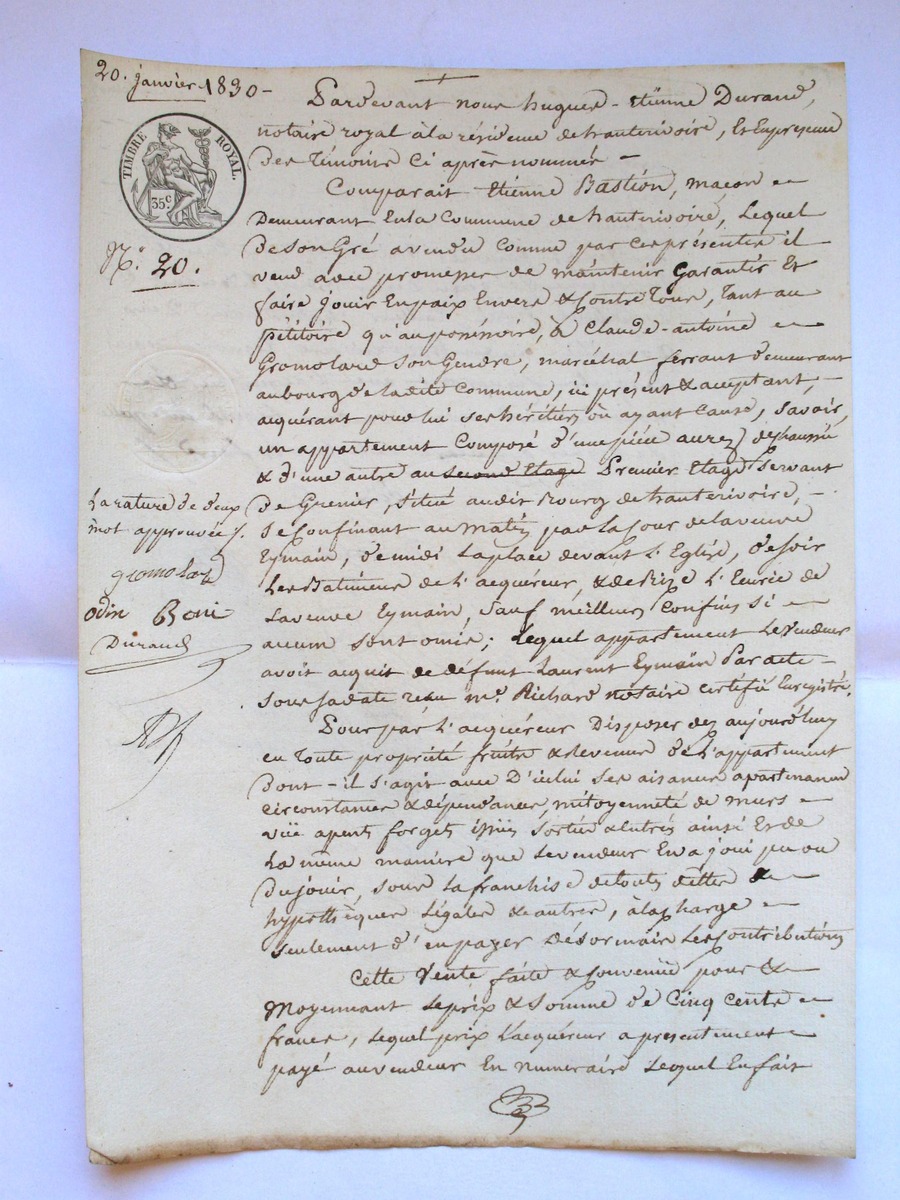 20. janvier 1830 -
TIMBRE ROYAL.
35c
No. 20.
Pardevant nous hugues-Etiënne Durand,
notaire royal à la résidence de hauterivoire, Et En presence
Des Témoins Ci après nommés -
Comparait Etiënne Bastiön, maçon
Demeurant En la Commune de hauterivoire, Lequel
De son Gré a vendu comme par ces présentes il
vend avec promesses de maintenir Garantir Et
faire jouir En paix Envers & Contre Tous, tant au
pétitoire qu'au possessoire, à Claude-antoine
Gromolard son Gendre, maréchal ferrant demeurant
au bourg de ladite Commune, ici présent & acceptant,
acquérant pour lui ses héritiers ou ayant Cause, savoir,
un appartement Composé d'une pièce au rez de chaussé
& d'une autre au second Etage Premier Etage Servant
de Grenier, Situé audit Bourg de hauterivoire,
Se Confinant au Matin par la Cour de la veuve
Eymain, de midi la place devant l'Eglise, de soir
Les Batimens de l'acquéreur, & de Bize l'Ecurie de
la veuve Eymain, Sauf meilleurs Confins si
aucuns sont omis; Lequel appartement Le vendeur
avoit acquit de défunt Laurent Eymain Par acte
sous sa date reçu me. Richard notaire certifié Enregistré.
Pour par L'acquéreur Disposer dès aujourd'huy
en toute propriété fruits & Revenus de l'appartement
dont-il s'agit avec D'icelui ses aisances apartenances
circonstances & dépendances, mitoyenneté de murs
vüe apents forgets issües sorties & Entrés ainsi Et de
La même maniere que Le vendeur En a joui pu ou
Du jouir, sous La franchise de toutes dettes &
hypothèques Légales & autres, à la Charge
seulement d'en payer Désormais Les Contributions
Cette Vente faite & Convenüe pour &
Moyennant Le prix & Somme de Cinq Cents
francs, Lequel prix L'acquéreur a présentement
payé au vendeur En numéraire Lequel En fait
La rature de deux
mot approuvée
gromolard
odin Boni
Durand